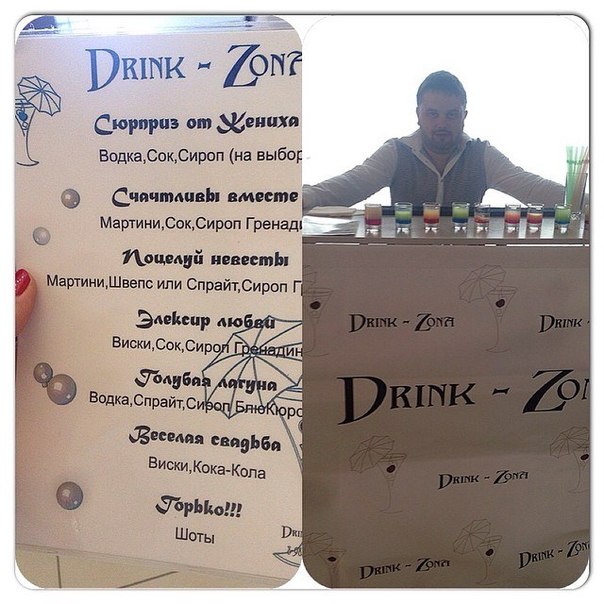 DRINK - ZONA
Сюрприз от Жениха
Водка,Сок,Сироп (на выбор
Счачтливы вместе
Мартини,Сок,Сироп Гренади
Поцелуй невесты
Мартини,Швепс или Спрайт,Сироп Г
Элексир любви
Виски,Сок,Сироп Гренадин
Голубая лагуна
Водка,Спрайт,Сироп БлюКюро
Веселая свадьба
Виски,Кока-Кола
Горько!!!
Шоты
DRINK - ZONA
DRINK -
DRINK - ZON
DRINK - ZONA
DRINK - ZONA
DRINK - ZON